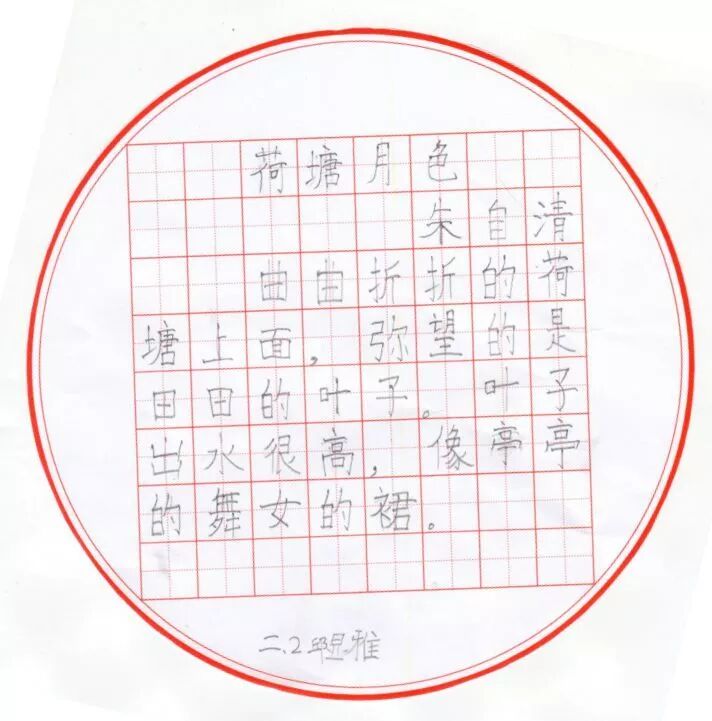 荷塘月色
朱自清
曲曲折折的荷
塘上面，弥望的是
田田的叶子。叶子
出水很高，像亭亭
的舞女的裙。
二.2 雅